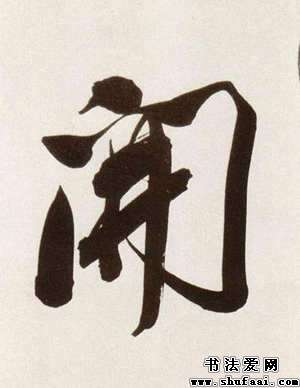 開
书法爱网
www.shufaai.com